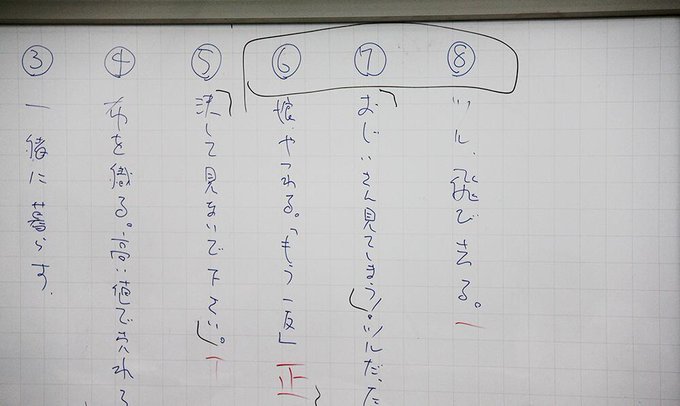 ③ 一緒に暮らす.
④ 布を織る。高い値で売れる
⑤ 「決して見ないで下さい」。 丅
⑥ 娘やつれる。「もう一反」 正
⑦ 「おじいさん見てしまう!」。ツルだった
⑧ ツル、飛び去る。 一